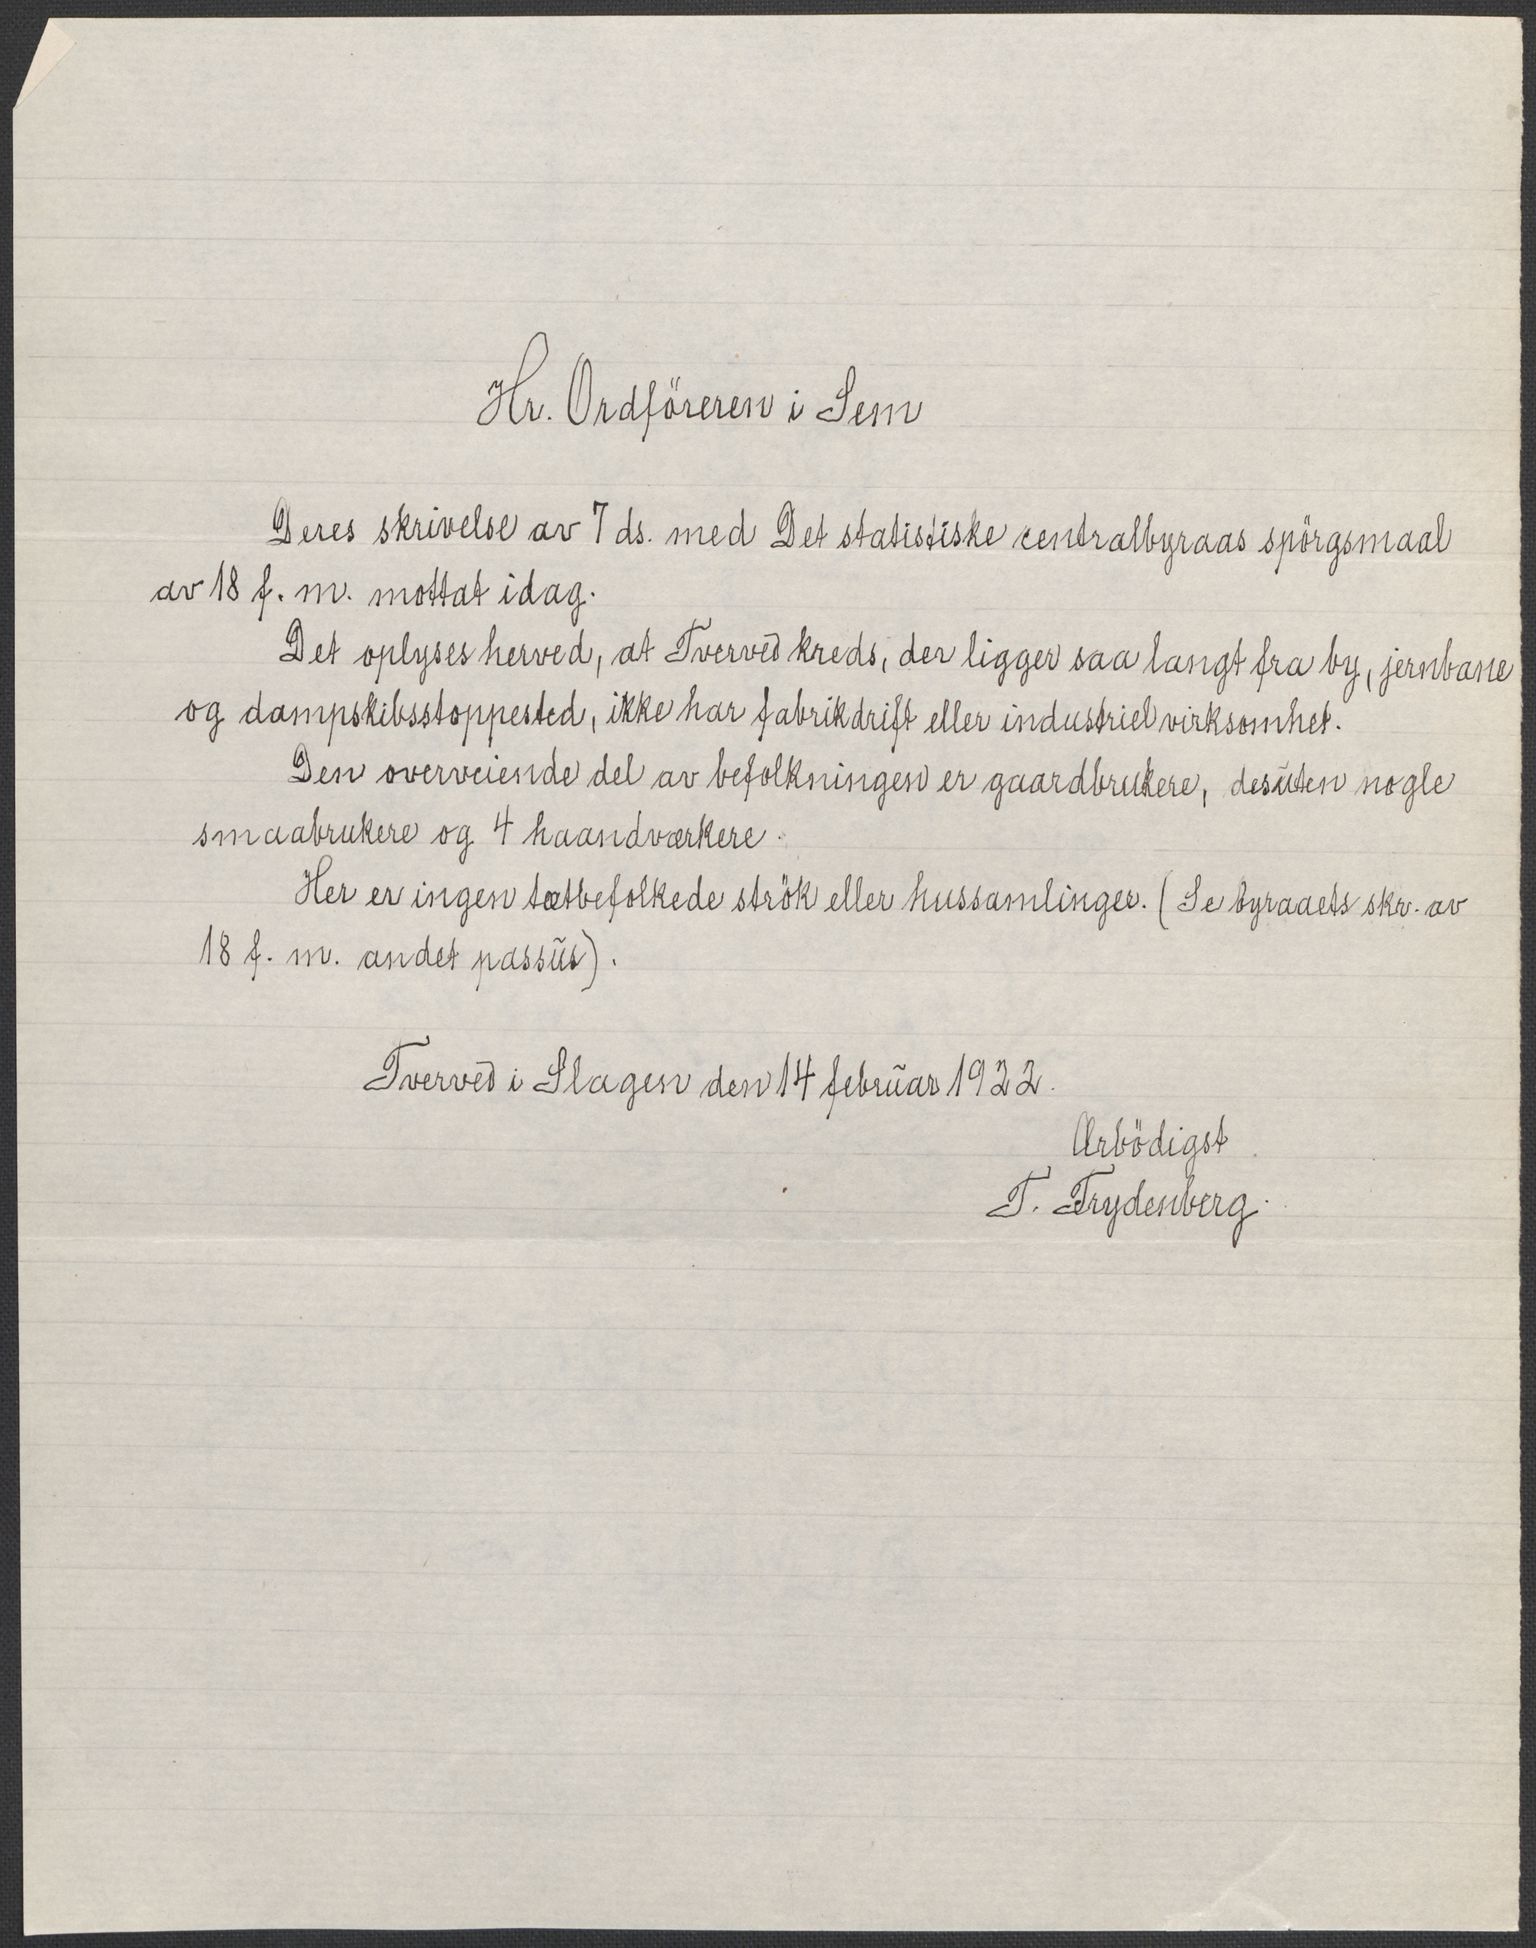 Hr. Ordföreren i Sem
Deres skrivelse av 7 ds. med Det statistiske centralbyraas spörgsmaal
av 18 f. m. mottat idag.
Det oplyses herved, at Tverved kreds, der ligger saa langt fra by, jernbane
og dampskibsstoppested, ikke har fabrikdrift eller industriel virksomhet.
Den overveiende del av befolkningen er gaardbrukere, desūten nogle
smaabrukere og 4 haandværkere.
Her er ingen tætbefolkede strök eller hussamlinger. (Se byraaets skr. av
18 f. m. andet passūs).
Tverved i Slagen den 14 febrūar 1922.
Ærbödigst
T. Trydenberg.